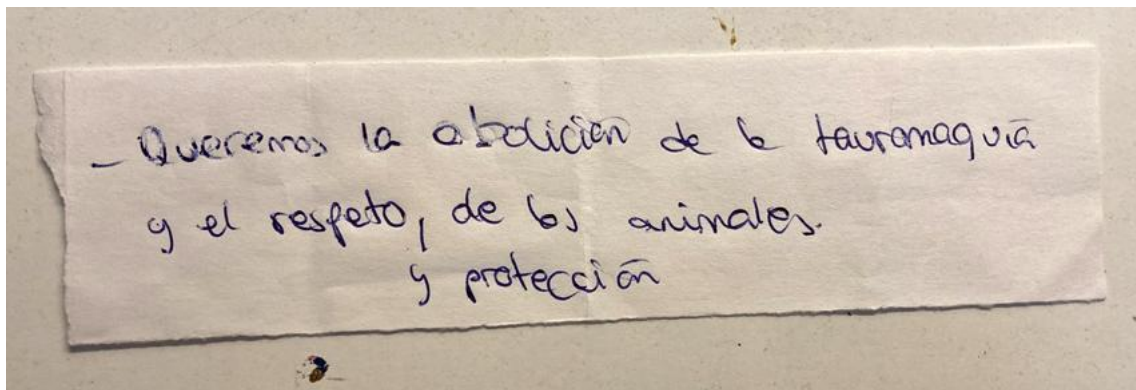 - Queremos la abolición de la tauromaquia
y el respeto, de los animales.
y protección